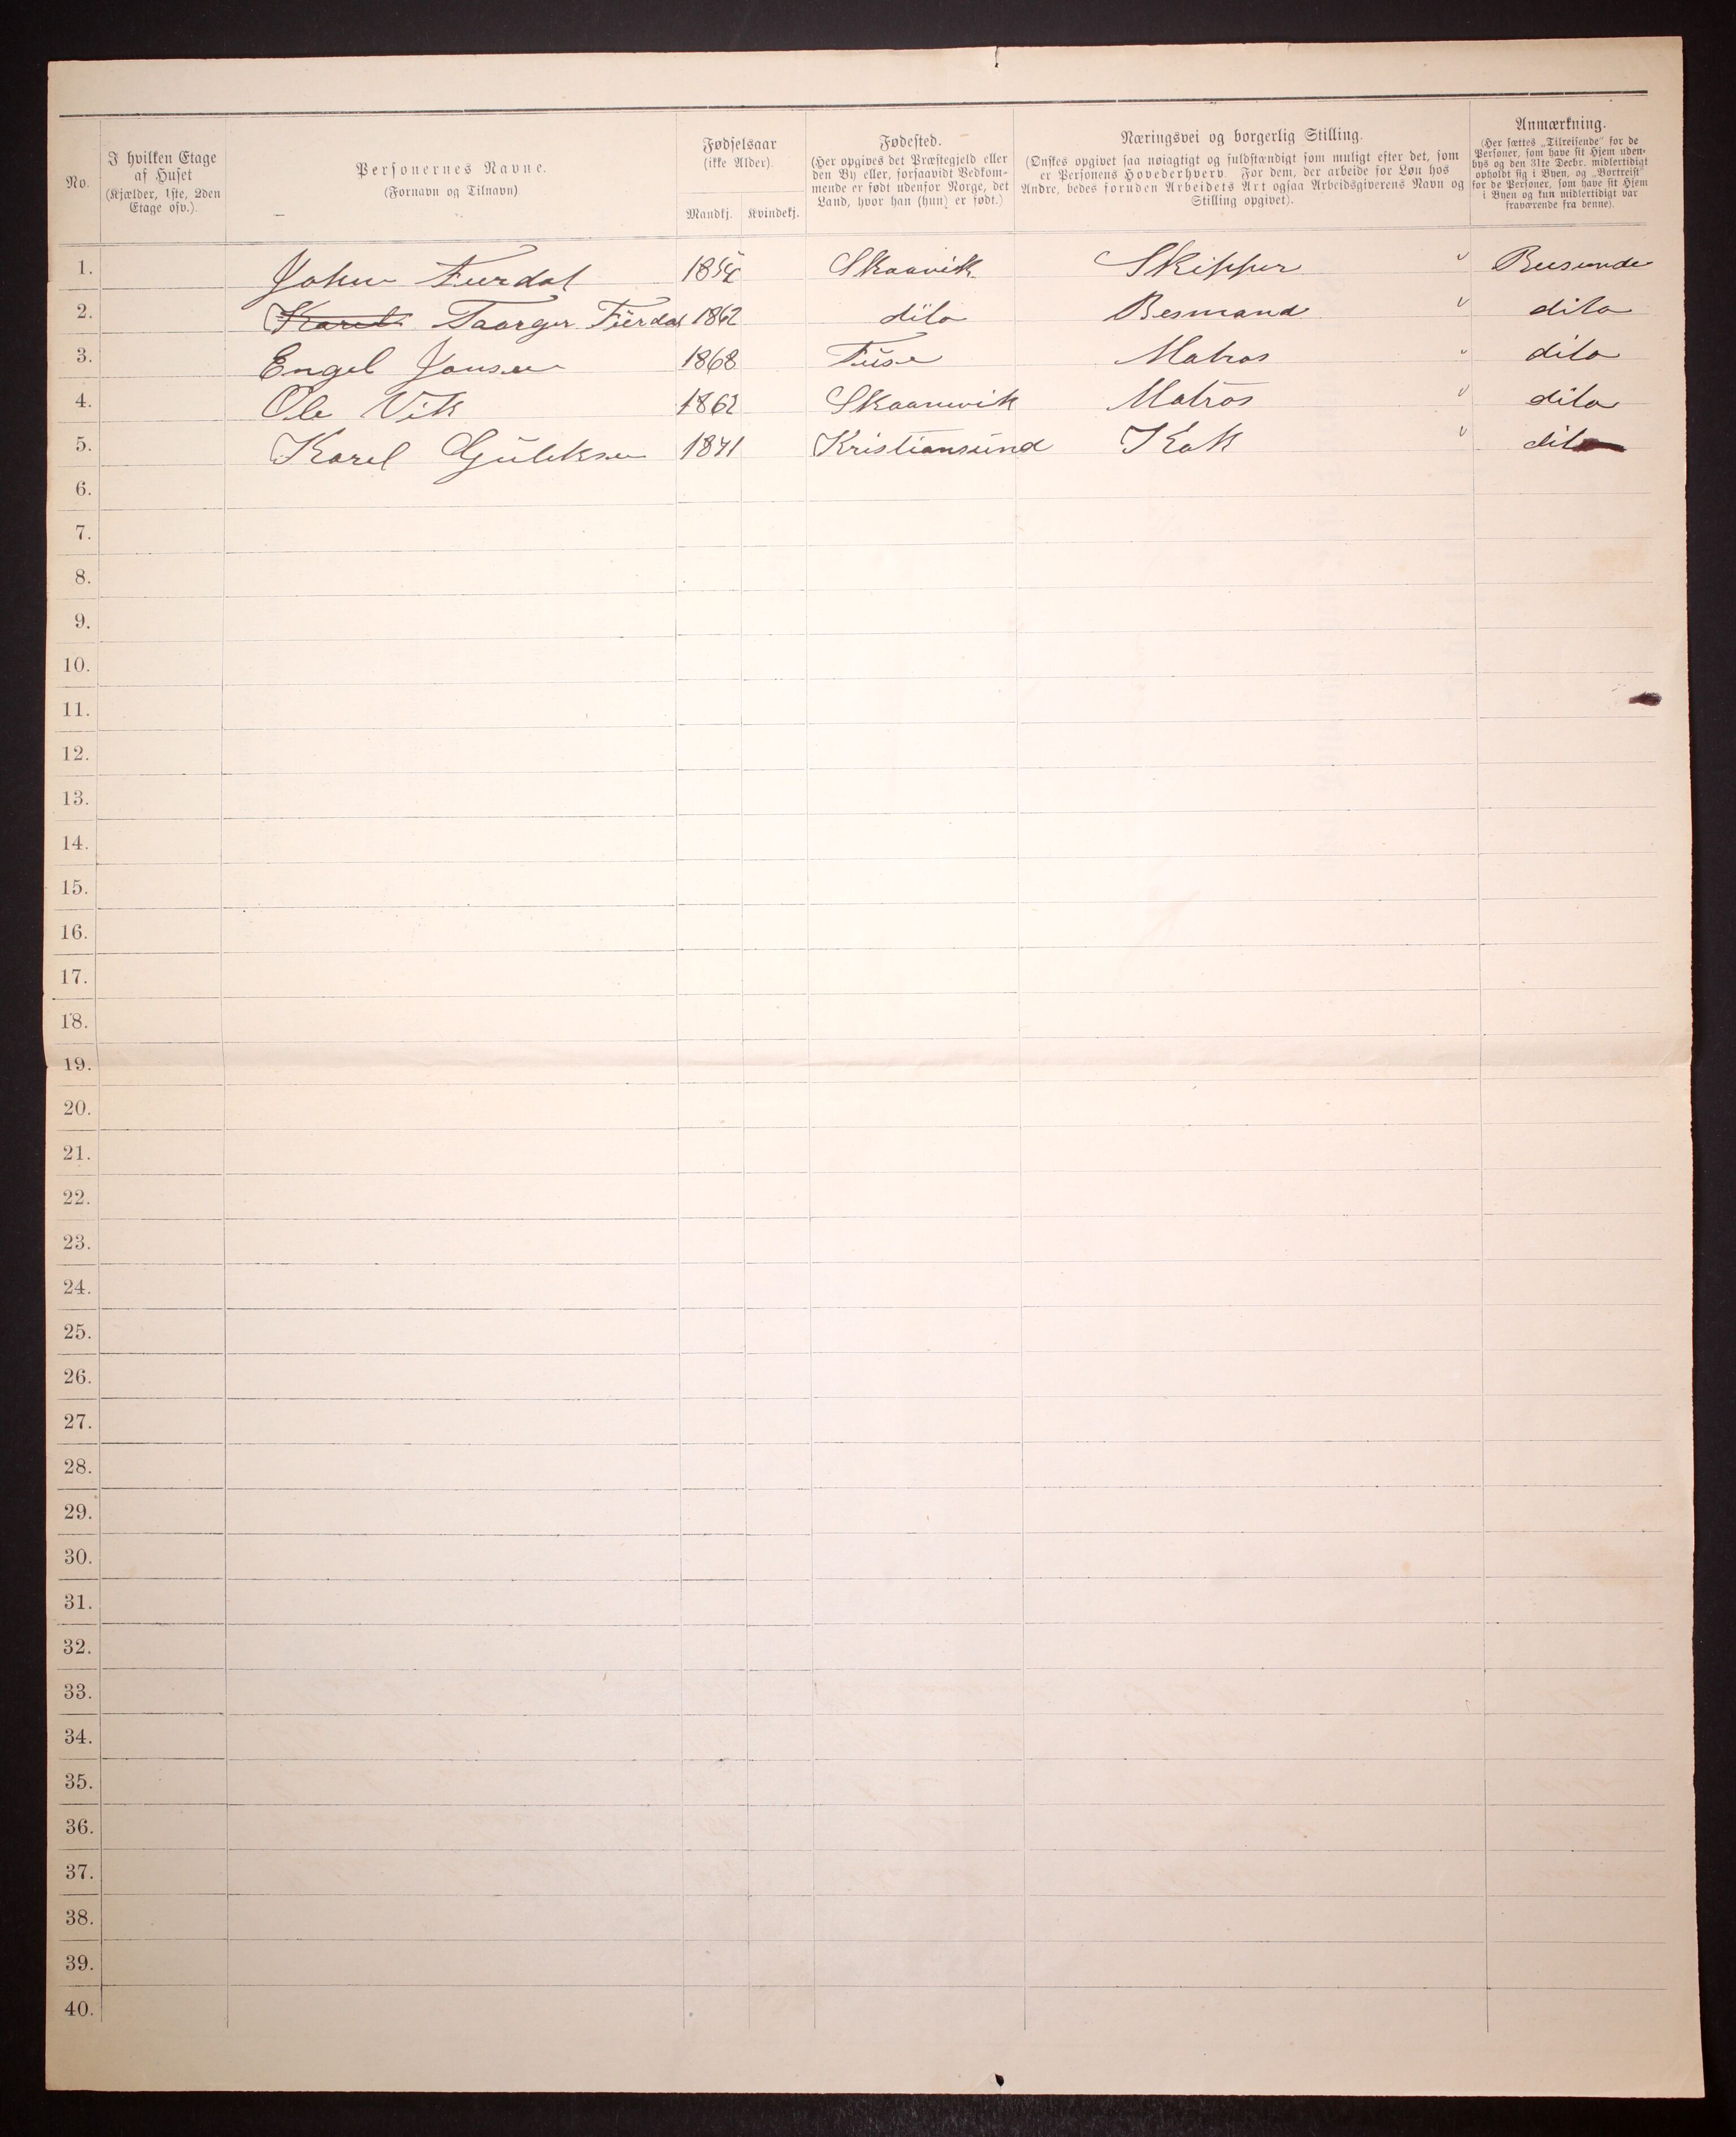 No.
I hvilken Etage
af Huset
(Kjælder, 1ste, 2den
Etage osv.).
Personernes Navne.
(Fornavn og Tilnavn)
Fødselsaar
(ikke Alder).
Mandkj. Kvindekj.
Fødested.
(Her opgives det Præstegjeld eller
den By eller, forsaavidt Vedkom-
mende er født udenfor Norge, det
Land, hvor han (hun) er født.)
Næringsvei og borgerlig Stilling.
(Ønskes opgivet saa nøiagtigt og fuldstændigt som muligt efter det, som
er Personens Hovederhverv. For dem, der arbeide for Løn hos
Andre, bedes foruden Arbeidets Art ogsaa Arbeidsgiverens Navn og
Stilling opgivet).
Anmærkning.
(Her sættes „Tilreisende" for de
Personer, som have sit Hjem uden-
bys og den 31te Decbr. midlertidigt
opholdt sig i Byen, og „Bortreist"
for de Personer, som have sit Hjem
i Byen og kun midlertidigt var
fraværende fra denne).
1. John Furdal 1854 Skaavik Skipper Reisende
2. Karel Taarger Fürdal 1862 dito Besmand dito
3. Engel Jonsen 1868 Füse Matros dito
4. Ole Vik 1862 Skaanwik Matros dito
5. Karel Güleksen 1841 Kristiansund Kok dito
6.
7.
8.
9.
10.
11.
12.
13.
14.
15.
16.
17.
18.
19.
20.
21.
22.
23.
24.
25.
26.
27.
28.
29.
30.
31.
32.
33.
34.
35.
36.
37.
38.
39.
40.